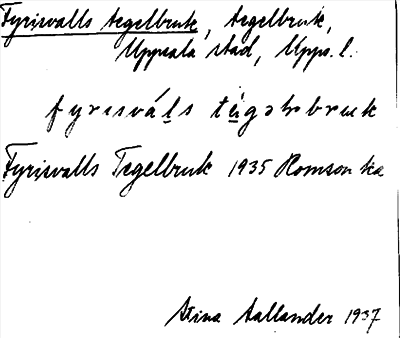 Fyrisvalls tegelbruk, tegelbruk,
Uppsala stad, Upps. l.
fyrisváls tégəlsbruk
Fyrisvalls Tegelbruk 1935 Romson ka
Stina Hallander 1937